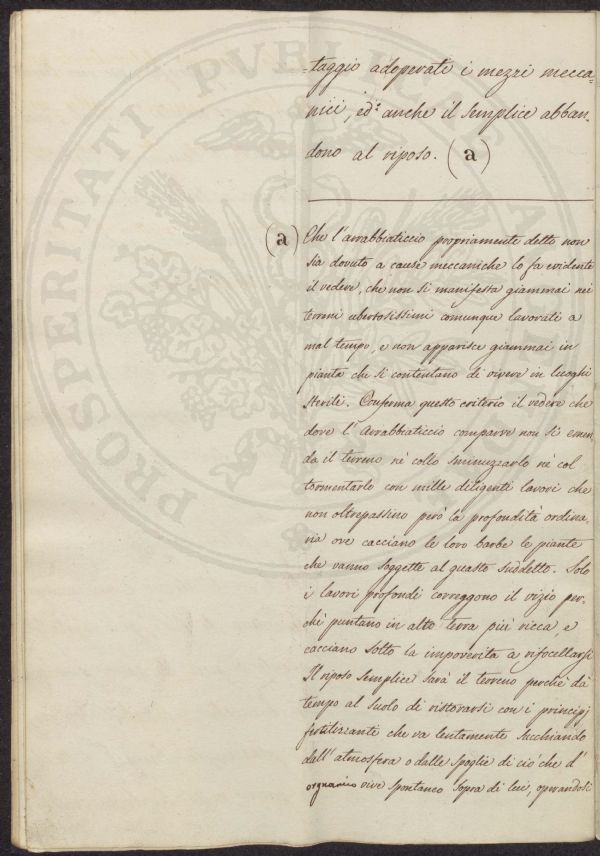 PROSPERITATI PVBLICAE A
-taggio adoperati i mezzi mecca=
nici, ed anche il semplice abban-
dono al riposo. (a)
(a) Che l'arrabbiaticcio propriamente detto non
sia dovuto a cause meccaniche lo fa evidente
il vedere, che non si manifesta giammai nei
terreni ubertosissimi comunque lavorati a
mal tempo, e non apparisce giammai in
pianta che si contentano di vivere in luoghi
sterili. Conferma questo criterio il vedere che
dove l'Arrabbiaticcio comparve non si emen,
da il terreno nè collo sminuzzarlo nè col
tormentarlo con mille diligenti lavori che
non oltrepassino però la profondità ordina,
ria ove cacciano le loro barbe le piante
che vanno soggette al guasto suddetto. Solo
i lavori profondi correggono il vizio per-
chè puntano in alto terra più ricca, e
cacciano sotto la impoverita a rifocellarsi
Il riposo semplice sarà il terreno perchè dà
tempo al suolo di ristorarsi con i principj
fertilizzante che va lentamente succhiando
dall'atmosfera o dalle spoglie di ciò che d'
organico vive spontaneo sopra di lui, operandosi